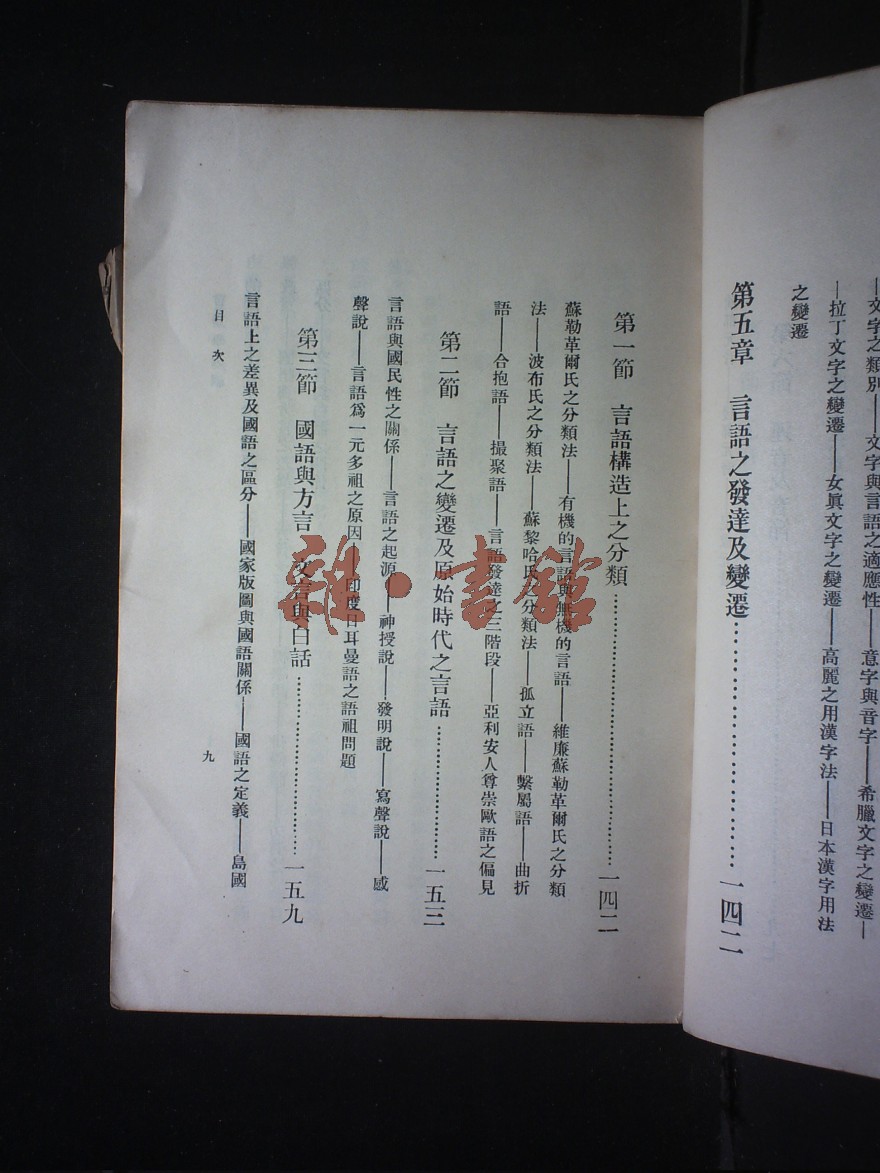 —文字之類別——文字與言語之適應性——意字與音字——希臘文字之變遷—
—拉丁文字之變遷——女眞文字之變遷——高麗之用漢字法——日本漢字用法
之變遷
第五章　言語之發達及變遷……………一四二
第一節　言語構造上之分類……………一四二
蘇勒革爾氏之分類法——有機的言語與無機的言語——維廉蘇勒革爾氏之分類
法——波布氏之分類法——蘇黎哈氏之分類法——孤立語——繫屬語——曲折
語——合抱語——撮聚語——言語發達之三階段——亞利安人尊崇歐語之偏見
第二節　言語之變遷及原始時代之言語……………一五三
言語與國民性之關係——言語之起源——神授說——發明說——寫聲說——感
聲說——言語爲一元多祖之原因——印度日耳曼語之語祖問題
第三節　國語與方言　文言與白話……………一五九
言語上之差異及國語之區分——國家版圖與國語關係——國語之定義——島國
目次
九
雜·書館